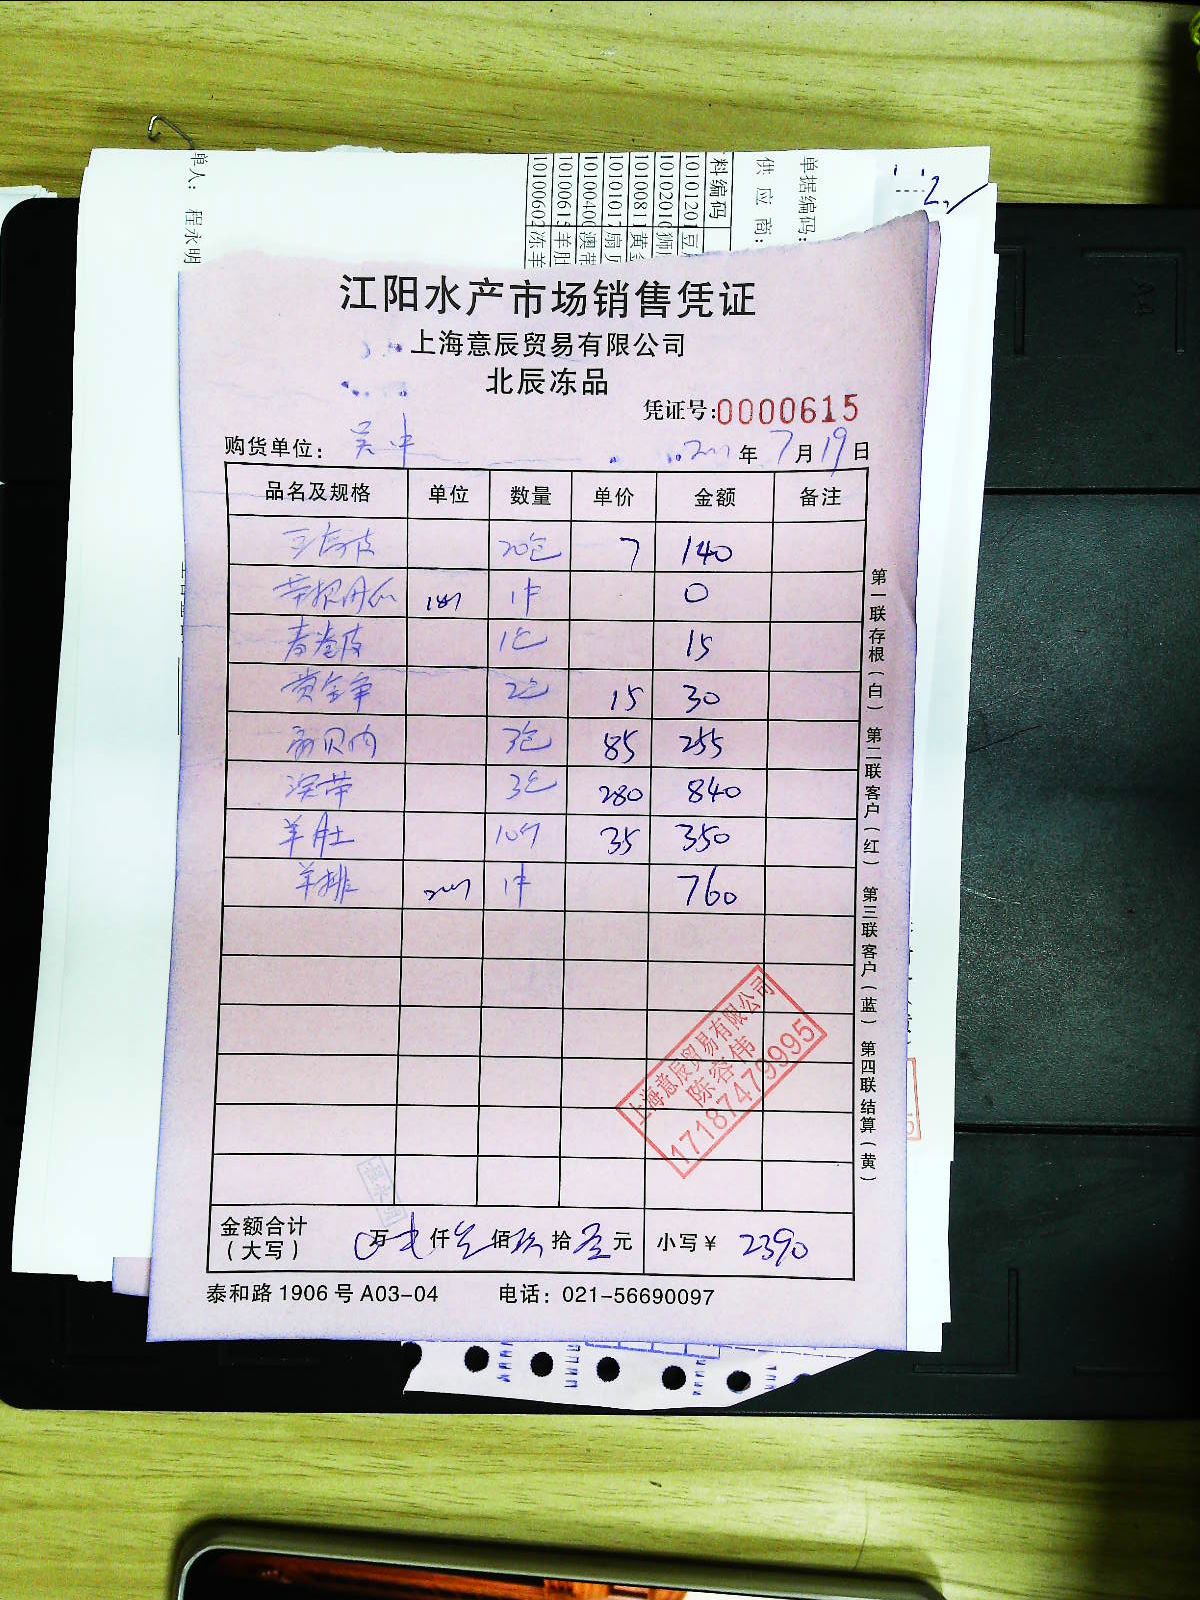 单人： 程永明
10100602 冻羊
10100615 羊肚
10100400 澳带
10101017 扇贝
10100811 黄金
10102010 狮
10101201 豆
料编码
供 应 商：
单据编码：
江阳水产市场销售凭证
上海意辰贸易有限公司
北辰冻品
凭证号:0000615
购货单位： 吴中 年 7 月 19 日
品名及规格 单位 数量 单价 金额 备注
20包 7 140
1件 0
春卷皮 1包 15
黄金 2包 15 30
扇贝肉 3包 85 255
澳带 3包 280 840
羊肚 10个 35 350
羊排 1件 760
第一联存根（白） 第二联客户（红） 第三联客户（蓝） 第四联结算（黄）
上海意辰贸易有限公司
陈容伟
17187479995
程永明
金额合计
（大写） 万 仟 佰 拾 元 小写￥ 2390
泰和路 1906 号 A03-04 电话：021-56690097